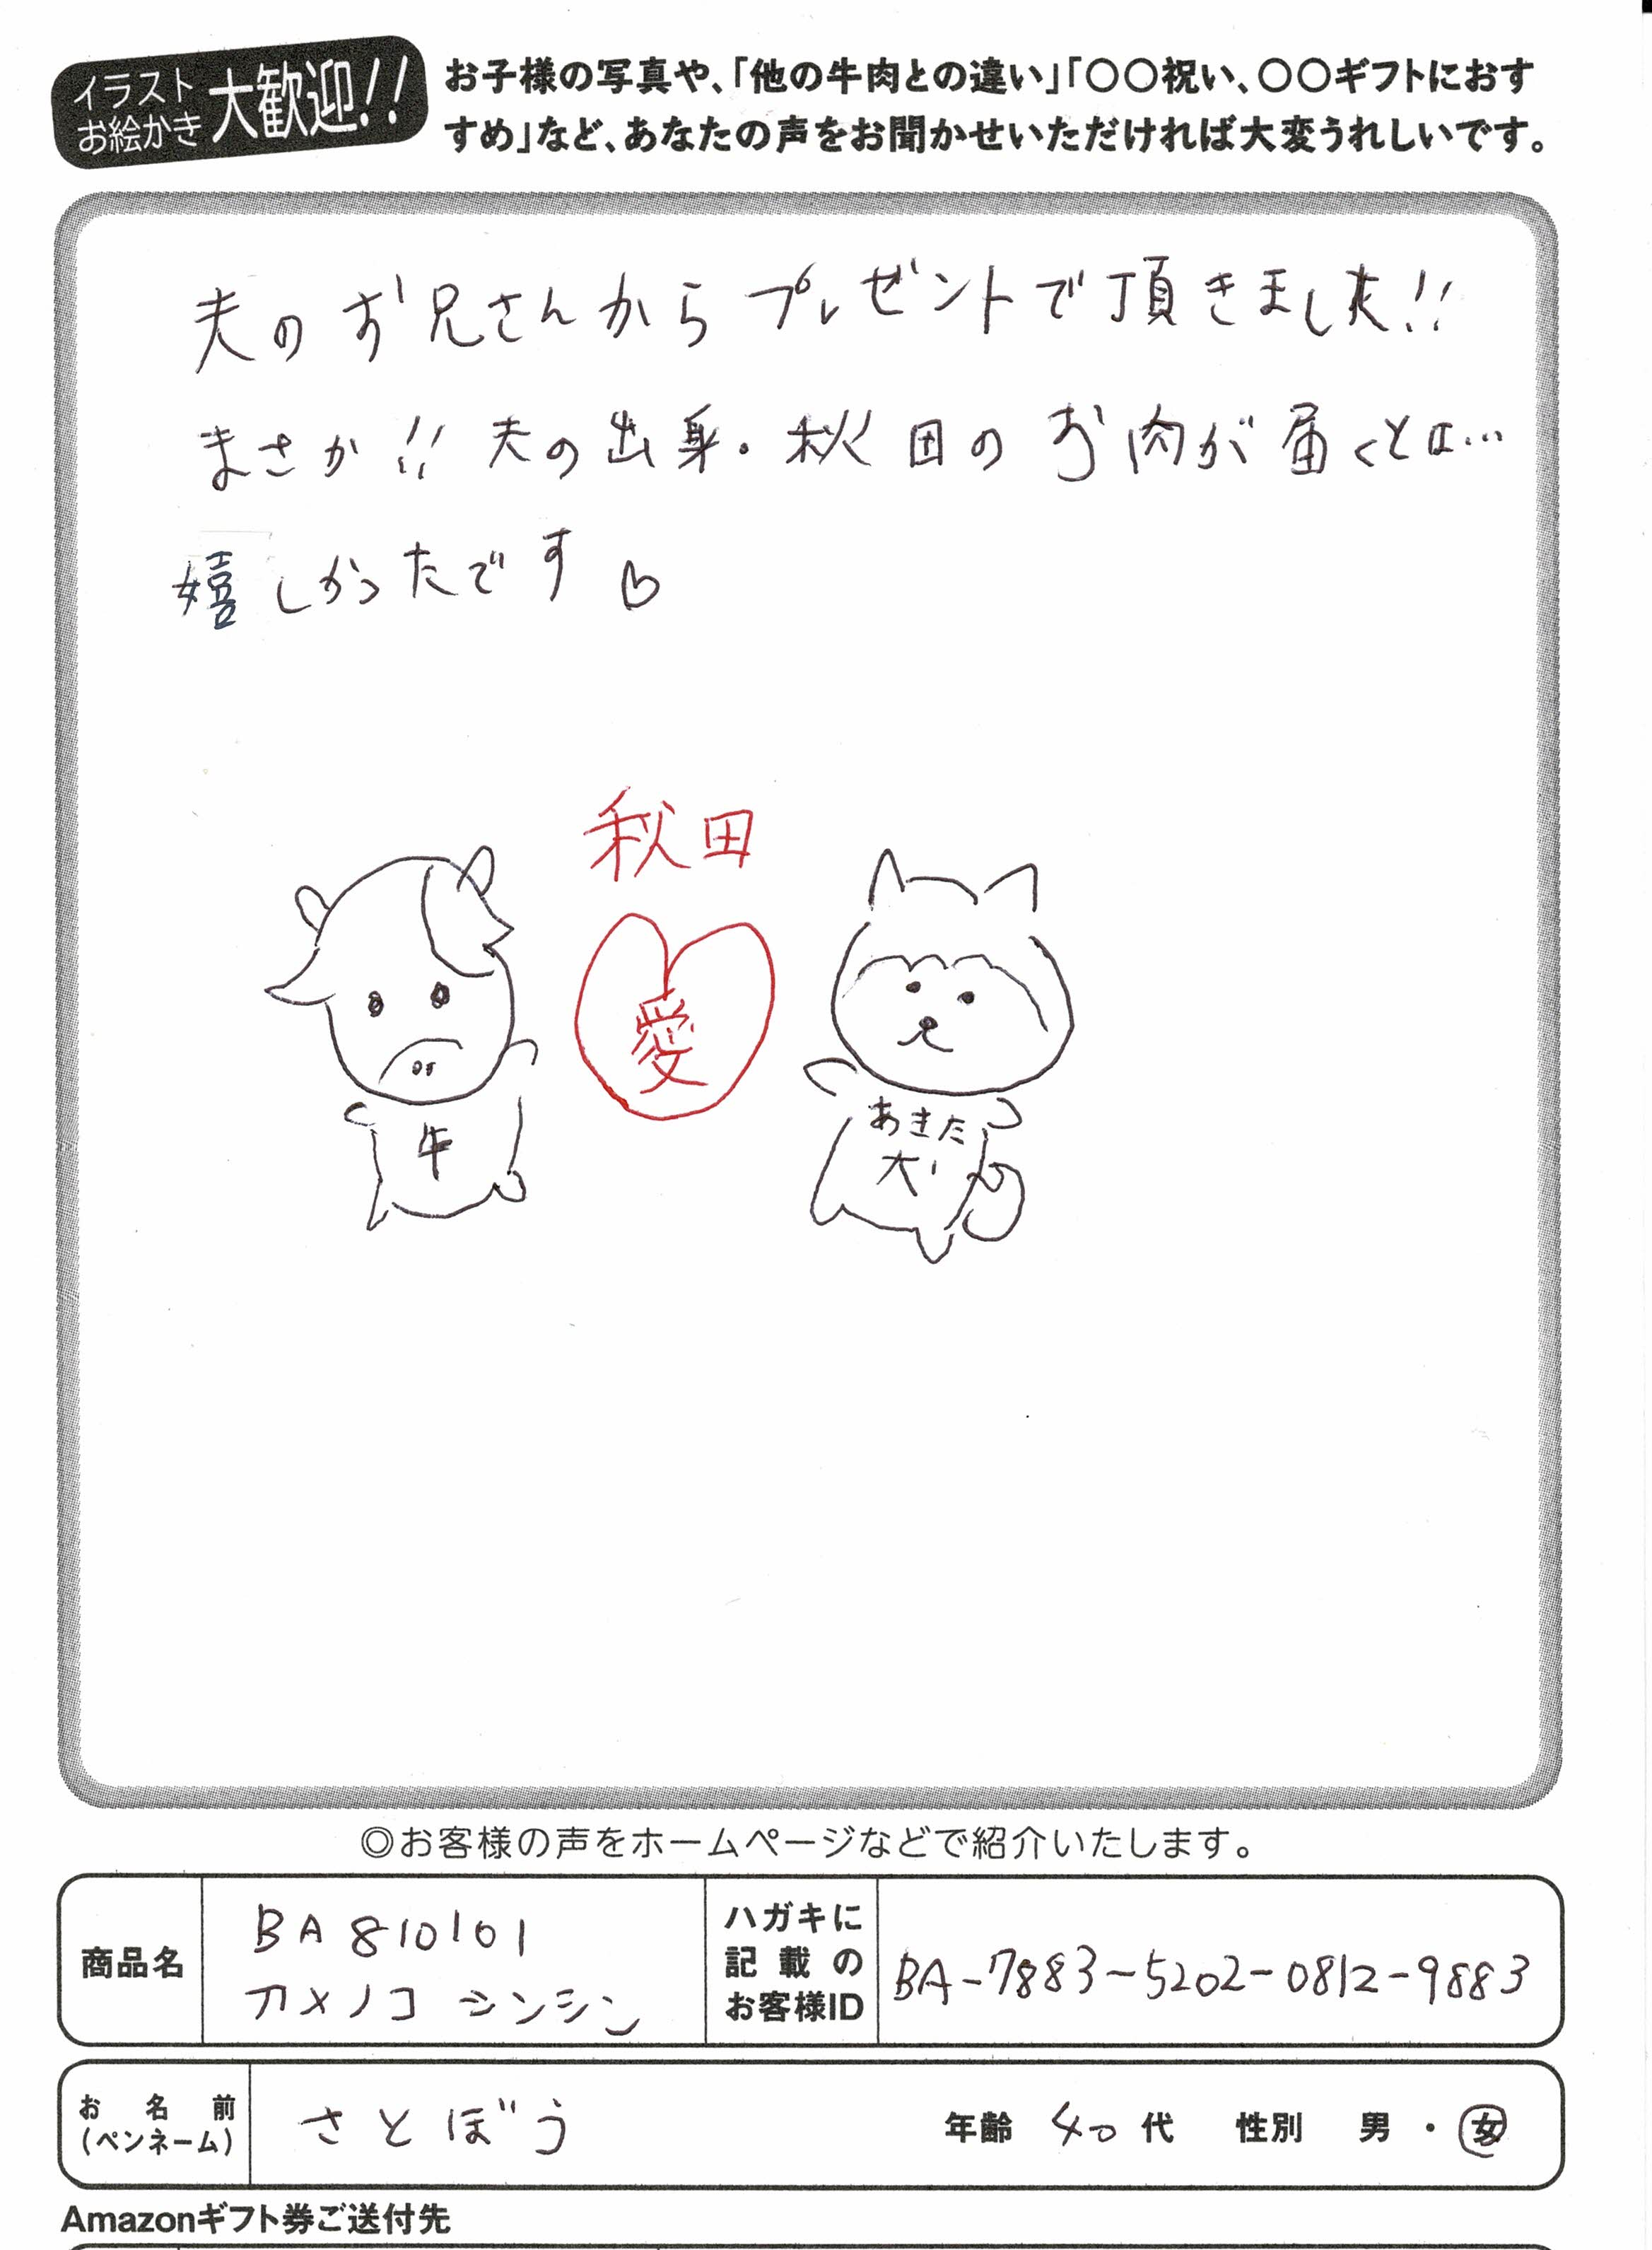 イラスト
お絵かき
大歓迎!!
お子様の写真や、「他の牛肉との違い」「〇〇祝い、〇〇ギフトにおす
すめ」など、あなたの声をお聞かせいただければ大変うれしいです。
夫のお兄さんからプレゼントで頂きました!!
まさか!!夫の出身・秋田のお肉が届くとは…
嬉しかったです♡
秋田
愛
牛
あきた
犬
◎お客様の声をホームページなどで紹介いたします。
商品名
BA810101
カメノコ シンシン
ハガキに
記載の
お客様ID
BA-7883-5202-0812-9883
お名前
(ペンネーム)
さとぼう
年齢 40代 性別 男・女
Amazonギフト券ご送付先